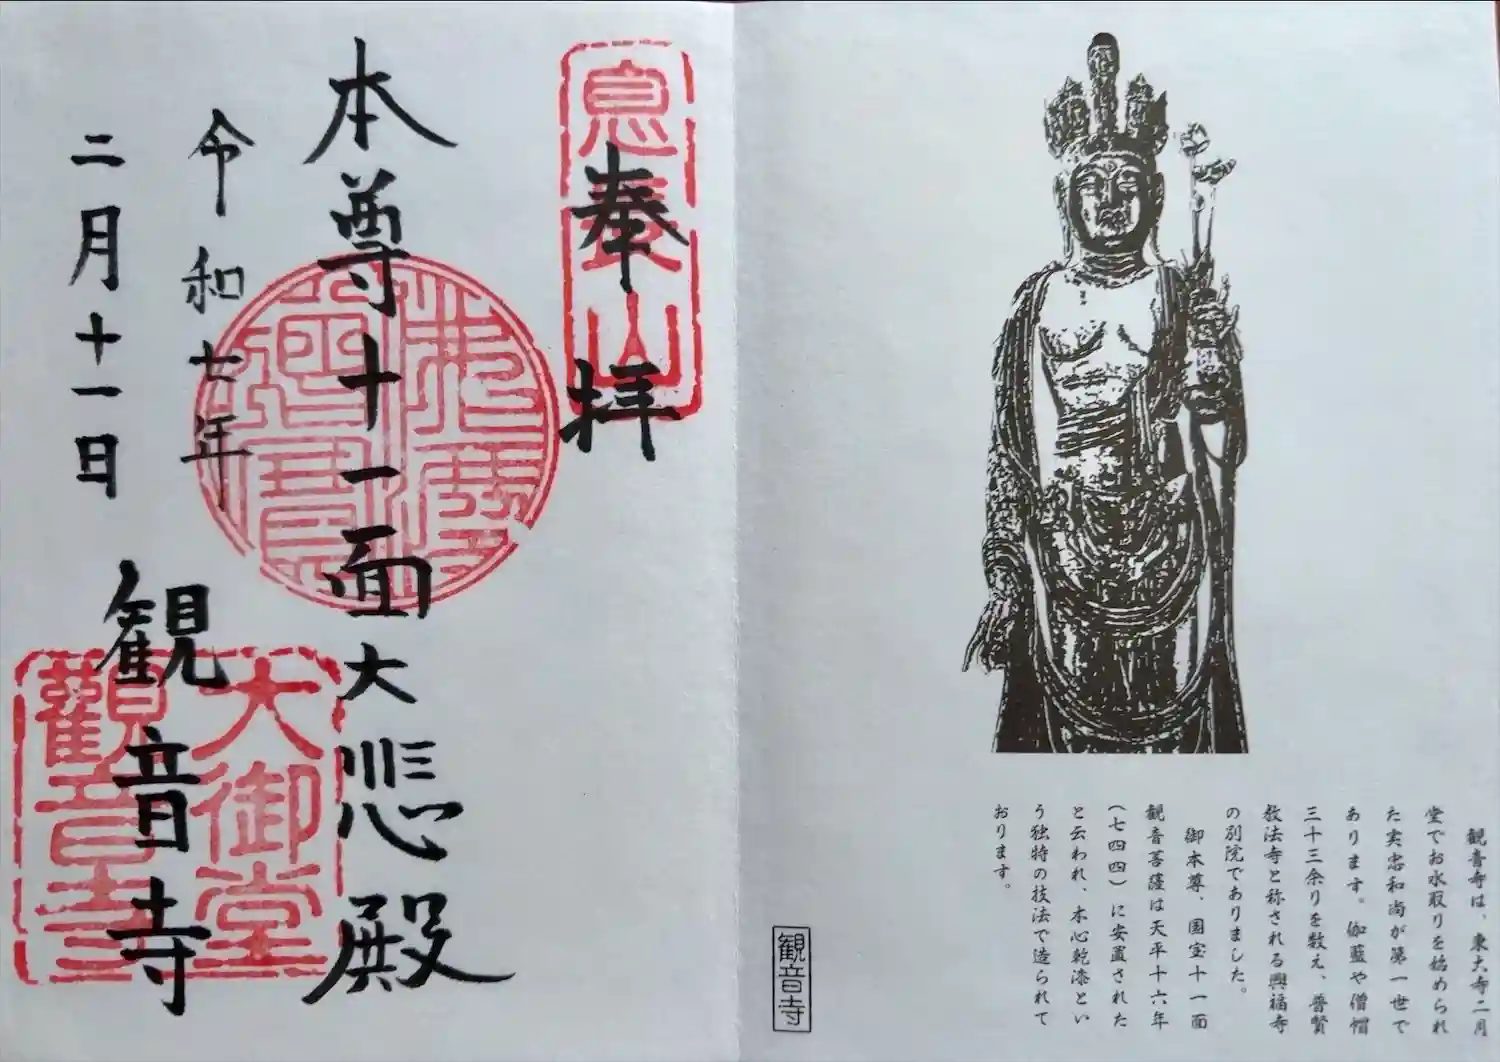 観音寺は、東大寺二月
堂でお水取りを始められ
た実忠和尚が第一世で
あります。伽藍や僧帽
三十三余りを数え、普賢
教法寺と称される興福寺
の別院でありました。
御本尊、国宝十一面
観音菩薩は天平十六年
(七四四)に安置された
と云われ、木心乾漆とい
う独特の技法で造られて
おります。
観音寺
息長山
奉拝
本尊十一面大悲殿
令和七年
二月十一日
観音寺
大御堂
觀音寺